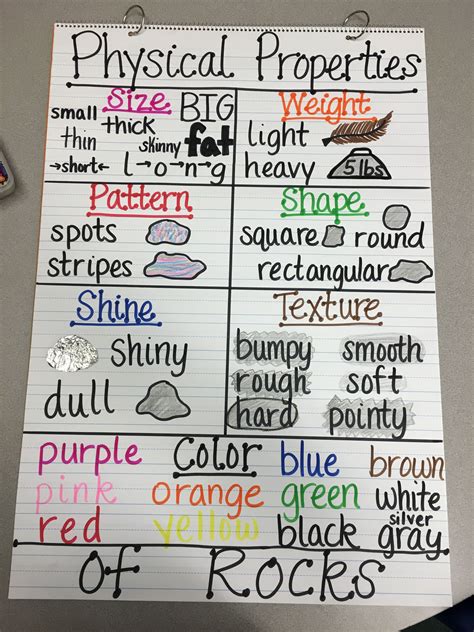 Physical Properties
Size
small BIG
thick
thin skinny fat
→short← l→o→n→g
Weight
light
heavy 5 lbs
Pattern
spots
stripes
Shape
square round
rectangular
Shine
shiny
dull
Texture
bumpy smooth
rough soft
hard pointy
purple Color blue brown
pink orange green white
red yellow black silver
gray
Of Rocks